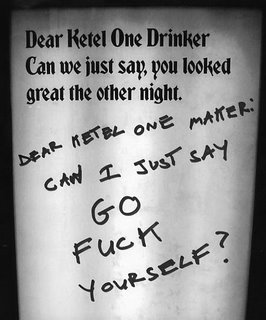 Dear Ketel One Drinker
Can we just say, you looked
great the other night.
DEAR KETEL ONE MAKER:
CAN I JUST SAY
GO
FUCK
YOURSELF?